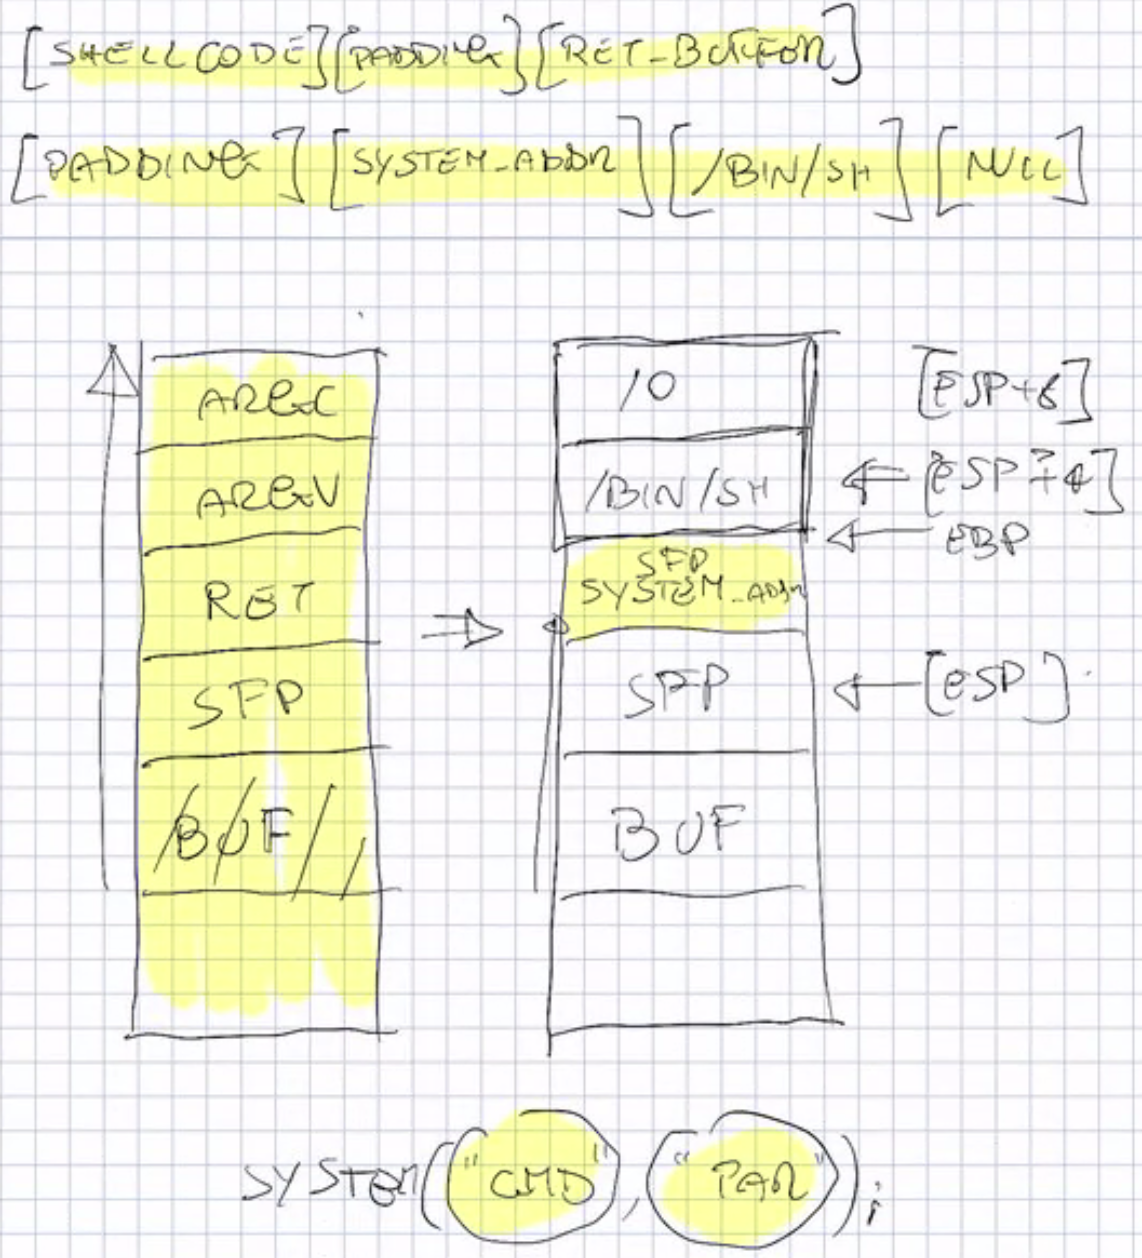 [SHELLCODE][PADDING][RET-BUFFER]
[PADDING] [SYSTEM_ADDR] [/BIN/SH] [NULL]
ARGC
ARGV
RET
SFP
BUF
/0
/BIN/SH
SFP
SYSTEM_ADDR
SFP
BUF
[ESP+8]
[ESP+4]
EBP
[ESP]
SYSTEM("CMD", "PAR");